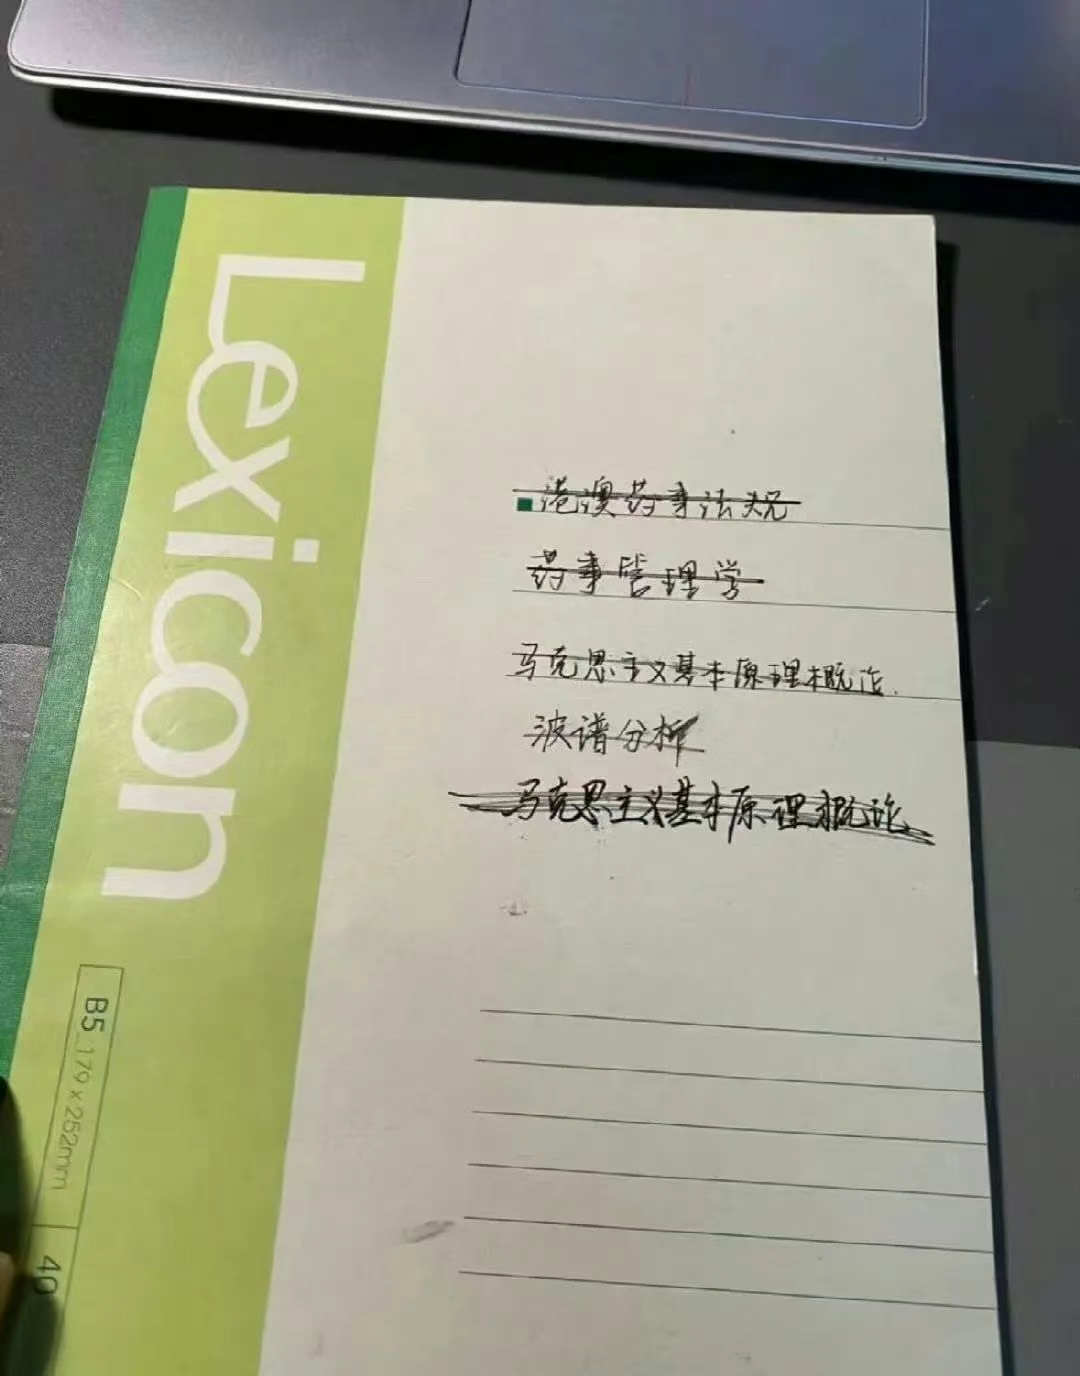 Lexicon
港澳药事法规
药事管理学
马克思主义基本原理概论.
波谱分析
马克思主义基本原理概论
B5 179×252mm 40